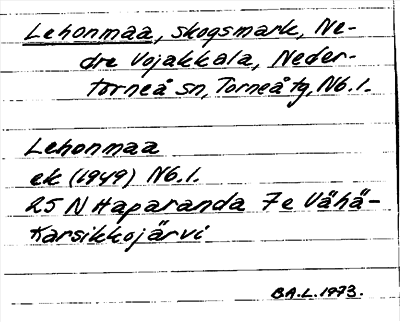 Lehonmaa, skogsmark, Ne-
dre Vojakkala, Neder-
torneå sn, Torneå tg, Nb. l.
Lehonmaa
ek (1949) Nb. l.
25 N Haparanda 7e Vähä-
Karsikkojärvi
BA.L. 1973.